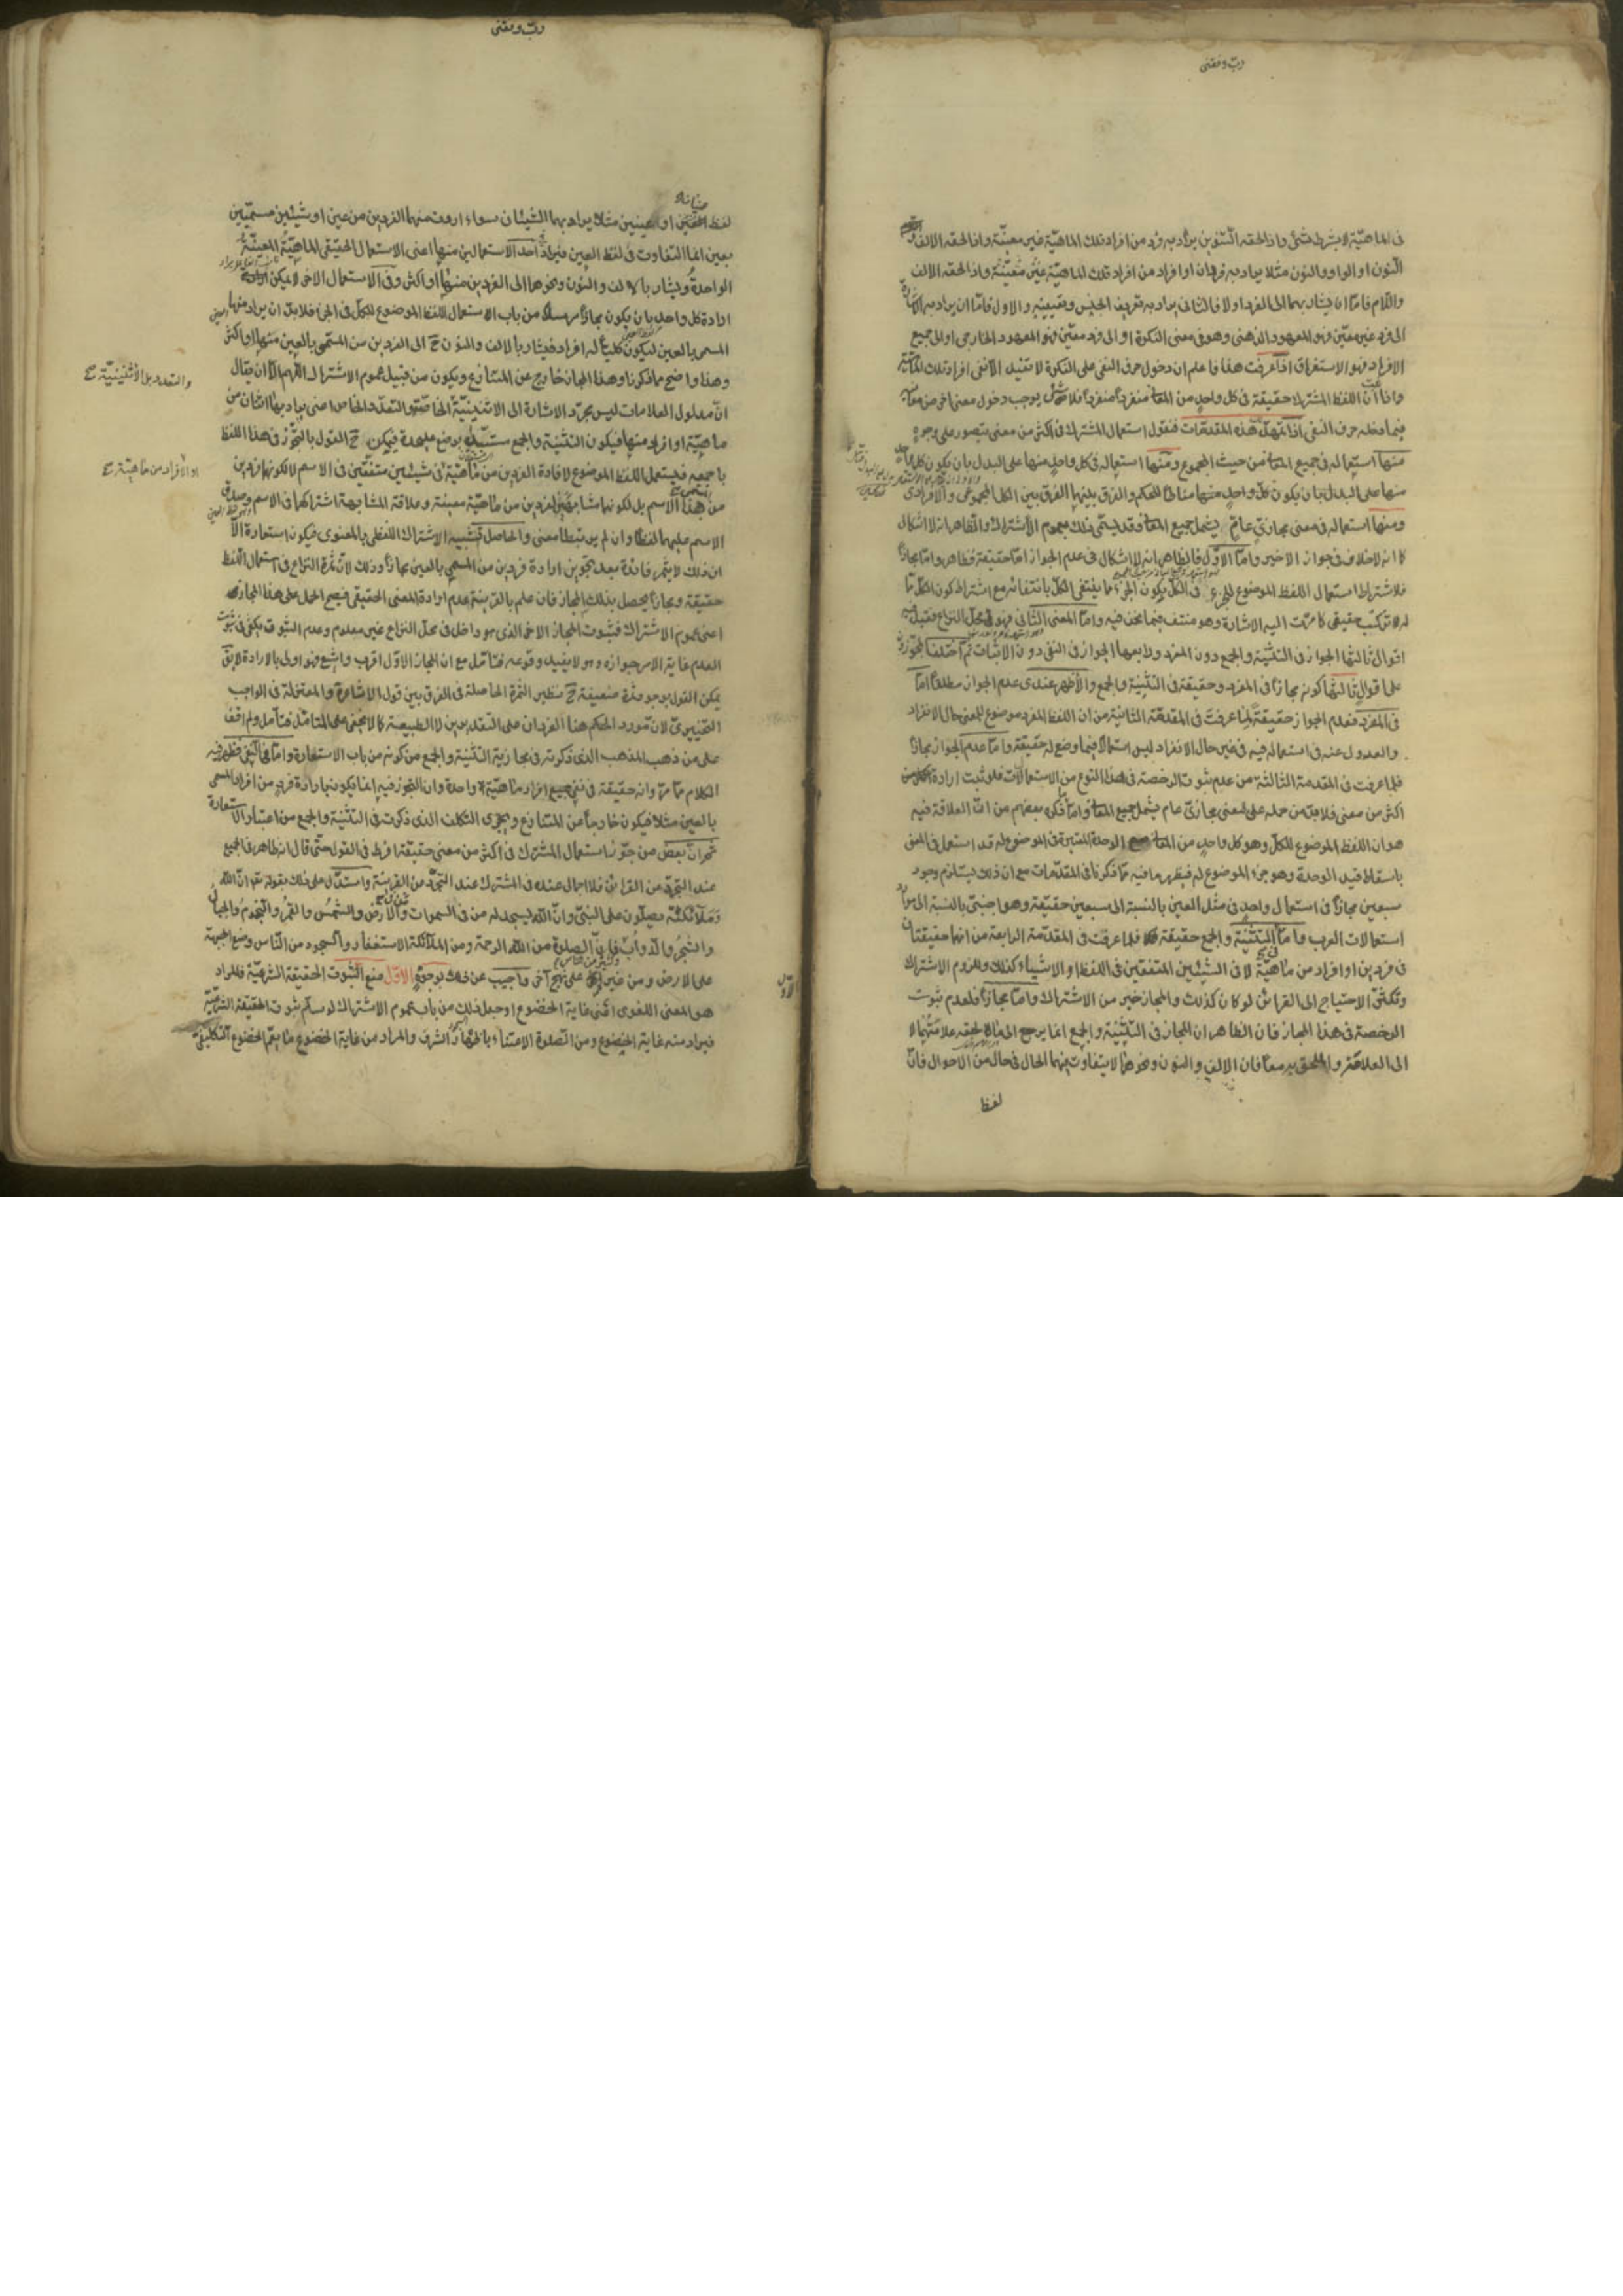 ربّ وفقنی
فی الماهیّة لا بشرط شئ واذا لحقه التنوین یراد به فرد من افراد تلك الماهیّة غیر معیّنة واذا لحقه الالف و
النون او الواو والنون مثلا یراد به فردان او افراد من افراد تلك الماهیّة غیر معیّنة واذا لحقه الالف
واللام فامّا ان یشار بهما الی الفرد اولا فالثانی یراد به تعریف الجنس وتعیینه والاول فامّا ان یراد به الاشارة
الی فرد غیر معیّن فهو المعهود الذهنی وهو فی معنی النكرة او الی فرد معیّن فهو المعهود الخارجی او الی جمیع
الافراد فهو الاستغراق اذا عرفت هذا فاعلم ان دخول حرف النفی علی النكرة لا یفید الّا نفی افراد تلك الماهیّة
وامّا ان اللفظ المشترك حقیقة فی كل واحد من المعانی منفردا منفردا فلا یوجب دخول معنی اخر من معانیه
فیما دخله حرف النفی اذا تمهّد هذه المقدّمات فنقول استعمال المشترك فی اكثر من معنی یتصور علی وجوه
منها استعماله فی جمیع المعانی من حیث المجموع ومنها استعماله فی كل واحد منها علی البدل بان یكون كل واحد
منها علی البدل بان یكون كلّ واحد منها مناطا للحكم والفرق بینهما الفرق بین الكل المجموعی والافرادی
ومنها استعماله فی معنی مجازی عامّ یشمل جمیع المعانی وقد یسمّی ذلك بعموم الاشتراك والظاهر انه لا اشكال
كما انه لا خلاف فی جواز الاخیر وامّا الاوّل فالظاهر انه لا اشكال فی عدم الجواز امّا حقیقة فظاهر وامّا مجازا
فلاشتراط استعمال اللفظ الموضوع للجزء فی الكل بكون الجزء مما ینتفی الكل بانتفائه مع اشتراط كون الكل مما
له تركّب حقیقی كما مرّت الیه الاشارة وهو منتف فیما نحن فیه وامّا المعنی الثانی فهو محل النزاع فقیل فیه
اقوال ثالثها الجواز فی التثنیة والجمع دون المفرد ورابعها الجواز فی النفی دون الاثبات ثم اختلف المجوّزون
علی اقوال ثالثها كونه مجازا فی المفرد وحقیقة فی التثنیة والجمع والاظهر عندی عدم الجواز مطلقا امّا
فی المفرد فعدم الجواز حقیقة لما عرفت فی المقدّمة الثانیة من ان اللفظ المفرد موضوع للمعنی حال الانفراد
والعدول عنه فی استعماله فیه فی غیر حال الانفراد لیس استعمالا فیما وضع له حقیقة وامّا عدم الجواز مجازا
فلما عرفت فی المقدمة الثالثة من عدم ثبوت الرخصة فی هذا النوع من الاستعمالات فلو ثبت ارادة
اكثر من معنی فلا بدّ من حمله علی المعنی مجازیّ عام یشمل جمیع المعانی وامّا ما ذكره بعضهم من انّ العلاقة فیه
هو ان اللفظ الموضوع للكل وهو كل واحد من المعانی مع الوحدة المعتبرة فی الموضوع له قد استعمل فی المعنی
باسقاط قید الوحدة وهو جزء الموضوع له فیظهر ما فیه ممّا ذكرنا فی المقدّمات مع ان ذلك یستلزم وجود
سبعین مجازا فی استعمال واحد فی مثل العین بالنسبة الی سبعین حقیقة وهو اجنبیّ بالنسبة الی مراد
استعمالات العرب وامّا التثنیة والجمع حقیقة فلما عرفت فی المقدّمة الرابعة من انهما حقیقتان
فی فردین او افراد من ماهیّة لا فی الشیئین المتفقین فی اللفظ او الاشیاء كذلك وللزوم الاشتراك
وتكثّر الاحتیاج الی القرائن لو كان كذلك والمجاز خیر من الاشتراك وامّا مجازا فلعدم ثبوت
الرخصة فی هذا المجاز فان الظاهر ان المجاز فی التثنیة والجمع انما یرجع الی ما لحقه علامتهما لا
الی العلامة والملحق به معا فان الالف والنون ونحوهما لا یتفاوت بهما الحال فی حال من الاحوال فانّ
لفظ
ربّ وفقنی
لفظ او عینین مثلا یراد بهما الشیئان سواء اردت منهما الفردین من عین او شیئین مسمّیین
بعین انما التفاوت فی لفظ العین فیراد احد الاستعمالین منها اعنی الاستعمال الحقیقی الماهیّة المعیّنة
الواحدة ویشار بالالف والنون ونحوهما الی الفردین منها او اكثر وفی الاستعمال الاخر لا یمكن
ارادة كل واحد بان یكون مجازا مرسلا من باب الاستعمال اللفظ الموضوع للكل فی الجزء فلا بدّ ان یراد منها
المسمی بالعین لیكون كلیّا له افراد فیشار بالالف والنون ح الی الفردین من المسمّی بالعین منها او اكثر
وهذا واضح مما ذكرنا وهذا المجاز خارج عن المتنازع ویكون من قبیل عموم الاشتراك اللهم الّا ان یقال
انّ مدلول العلامات لیس مجرّد الاشارة الی الاثنینیّة الخاصّة والتعدّد الخاص اعنی یراد بها اثنان من
ماهیّة او ازید منها فیكون التثنیة والجمع بوضع علیحدة فیمكن ح القول بالتجوّز فی هذا اللفظ
باجمعه فیستعمل اللفظ الموضوع لافادة الفردین من ماهیّة فی شیئین متفقین فی الاسم لا لكونهما فردین
من هذا الاسم بل لكونهما مشابهین لفردین من ماهیّة معینة وعلاقة المشابهة اشتراكهما فی الاسم وصدق
الاسم علیهما لفظا وان لم یرتبطا معنی والحاصل تشبیه الاشتراك اللفظی بالمعنوی فیكون استعارة الّا
ان ذلك لا یثمر فائدة بعد تجویز ارادة فردین من المسمی بالعین مجازا وذلك لانّ ثمرة النزاع فی استعمال اللفظ
حقیقة ومجازا یحصل بذلك المجاز فان علم بالقرینة عدم ارادة المعنی الحقیقی فیصح الحمل علی هذا المجاز
اعنی عموم الاشتراك فثبوت المجاز الاخر الذی هو داخل فی محل النزاع غیر معلوم وعدم الثبوت یكفی فی ثبوت
العدم غایة الامر جوازه وهو لا یفید وقوعه فتأمّل مع ان المجاز الاوّل اقرب واشیع فهو اولی بالارادة لا یق
یمكن القول بوجود ثمرة ضعیفة ح نظیر الثمرة الحاصلة فی الفرق بین قول الاشاعرة والمعتزلة فی الواجب
التخییری لانّ مورد الحكم هنا الفردان علی التقدیرین لا الطبیعة كما لا یخفی علی المتامّل فتأمل ولم اقف
علی من ذهب المذهب الذی ذكرته فی مجازیة التثنیة والجمع من كونه من باب الاستعارة وامّا فی النفی فیظهر فیه
الكلام ممّا مرّ وانه حقیقة فی نفی جمیع افراد ماهیّة واحدة وان التجوز فیه انما یكون بارادة فرد من افراد المسمی
بالعین مثلا فیكون خارجا عن المتنازع ویجری التكلف الذی ذكرت فی التثنیة والجمع من اعتبار الاستعارة
ثمّ انّ بعض من جوّز استعمال المشترك فی اكثر من معنی حقیقة افرط فی القول حتّی قال انه ظاهر فی الجمیع
عند التجرّد من القرائن فلا اجمال عنده فی المشترك عند التجرّد من القرینة واستدلّ علی ذلك بقوله تعم انّ اللّه
وَمَلآئكته یصلّون علی النبیّ وانّ اللّه لیسجد له من فی السموات والارض والشمس والقمر والنجوم والجبال
والشجر والدوابّ فانّ الصلوة من اللّه الرحمة ومن الملائكة الاستغفار والسجود من النّاس وضع الجبهة
علی الارض ومن غیرهم علی نهج اخر واجیب عن ذلك بوجوه الاوّل منع الثبوت الحقیقة الشرعیّة فالمراد
هو المعنی اللغوی اعنی غایة الخضوع او جعل ذلك من باب عموم الاشتراك لو سلّم ثبوت الحقیقة الشرعیّة
فیراد منه غایة الخضوع ومن الصلوة الاعتناء باظهار الشرف والمراد من غایة الخضوع ما یعمّ الخضوع التكلیفیّ
والتعدد بل الاثنینیّة
او الافراد من ماهیّة
الاوّل